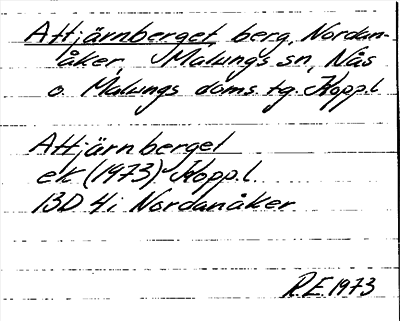 Attjärnberget, berg, Nordan-
åker, Malungs sn, Nås
o. Malungs doms. tg. Kopp.l
Attjärnberget
ek (1973) Kopp.l.
13D 4i Nordanåker
R.E 1973